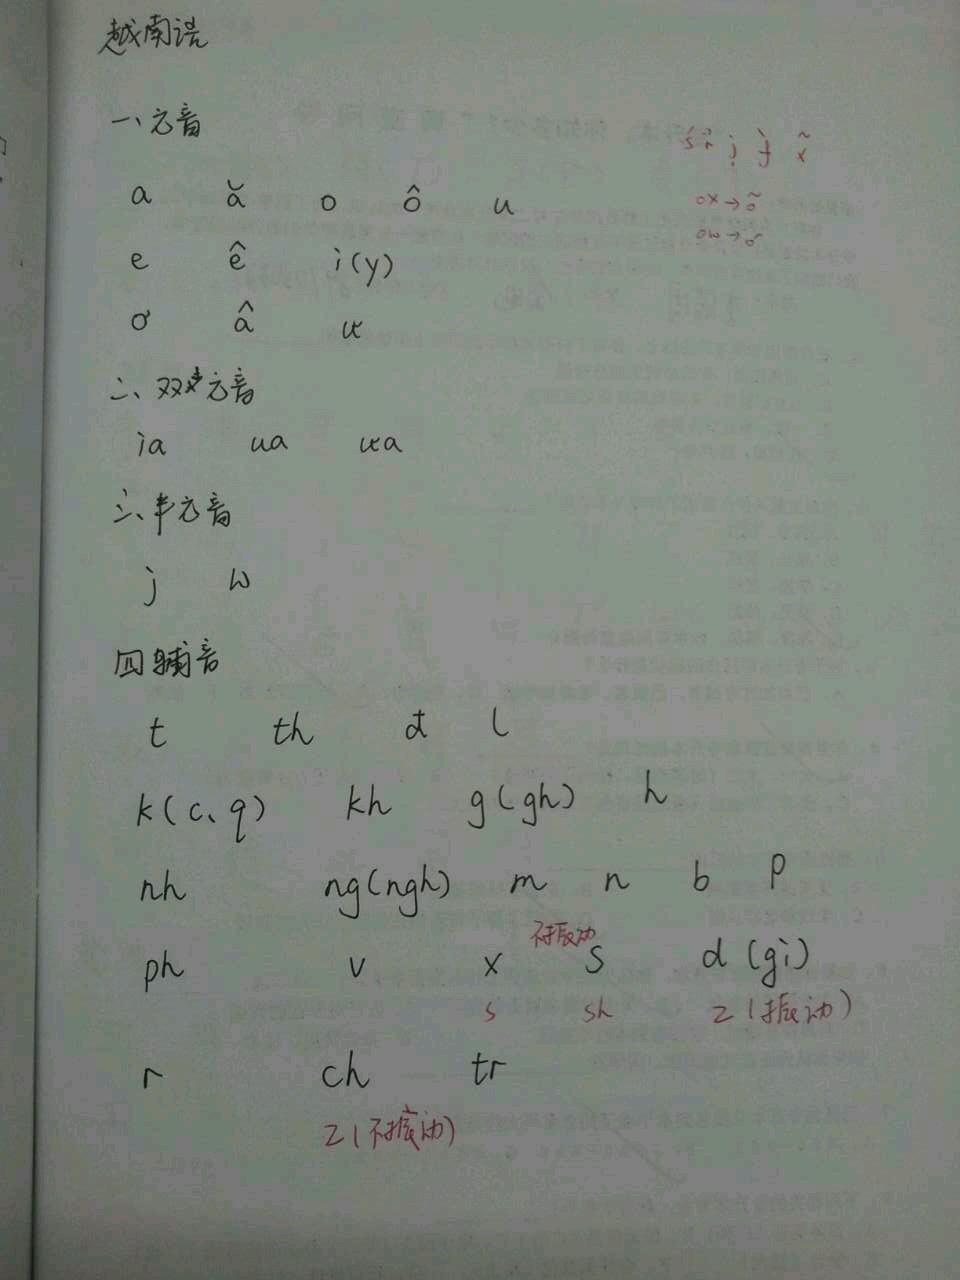 越南语
一、元音
ś ̉r j f̀ x̃
a ă o ô u
ox→õ
ow→ơ
e ê i(y)
ơ â ư
二、双元音
ia ua ưa
三、半元音
j w
四辅音
t th đ l
k(c、q) kh g(gh) h
nh ng(ngh) m n b p
不振动
ph v x s d(gi)
s sh z(振动)
r ch tr
z(不振动)